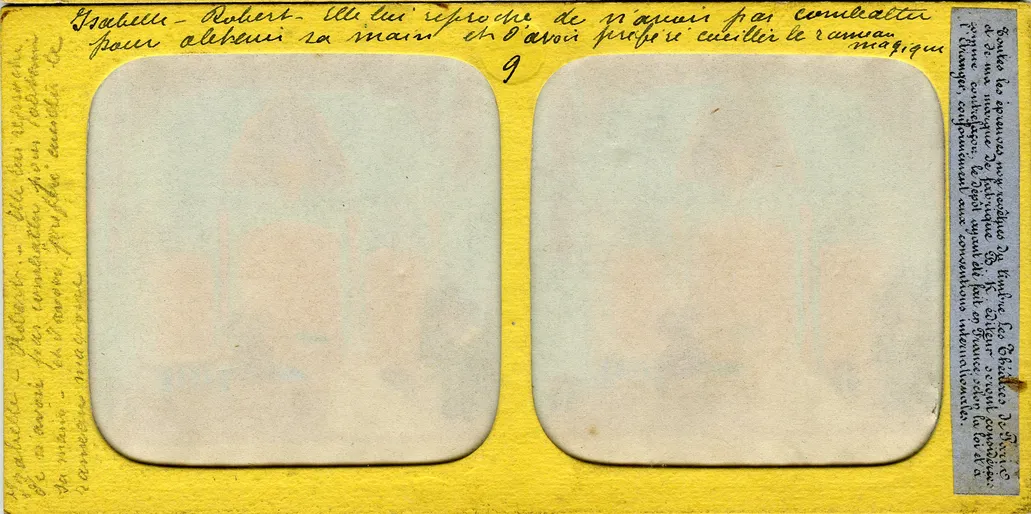 Isabelle - Robert - Elle lui reproche de n'avoir pas combattu
pour obtenir sa main et d'avoir préféré cueillir le rameau
magique
9
Isabelle - Robert - Elle lui reproche
de n'avoir pas combattu pour obtenir
sa main - et d'avoir préféré cueillir le
rameau magique
Toutes les épreuves non revêtues du timbre Les Théâtres de Paris
et de ma marque de fabrique B. K. éditeur seront considérées
comme contrefaçon, le dépôt ayant été fait en France selon la loi et à
l'étranger, conformément aux conventions internationales.